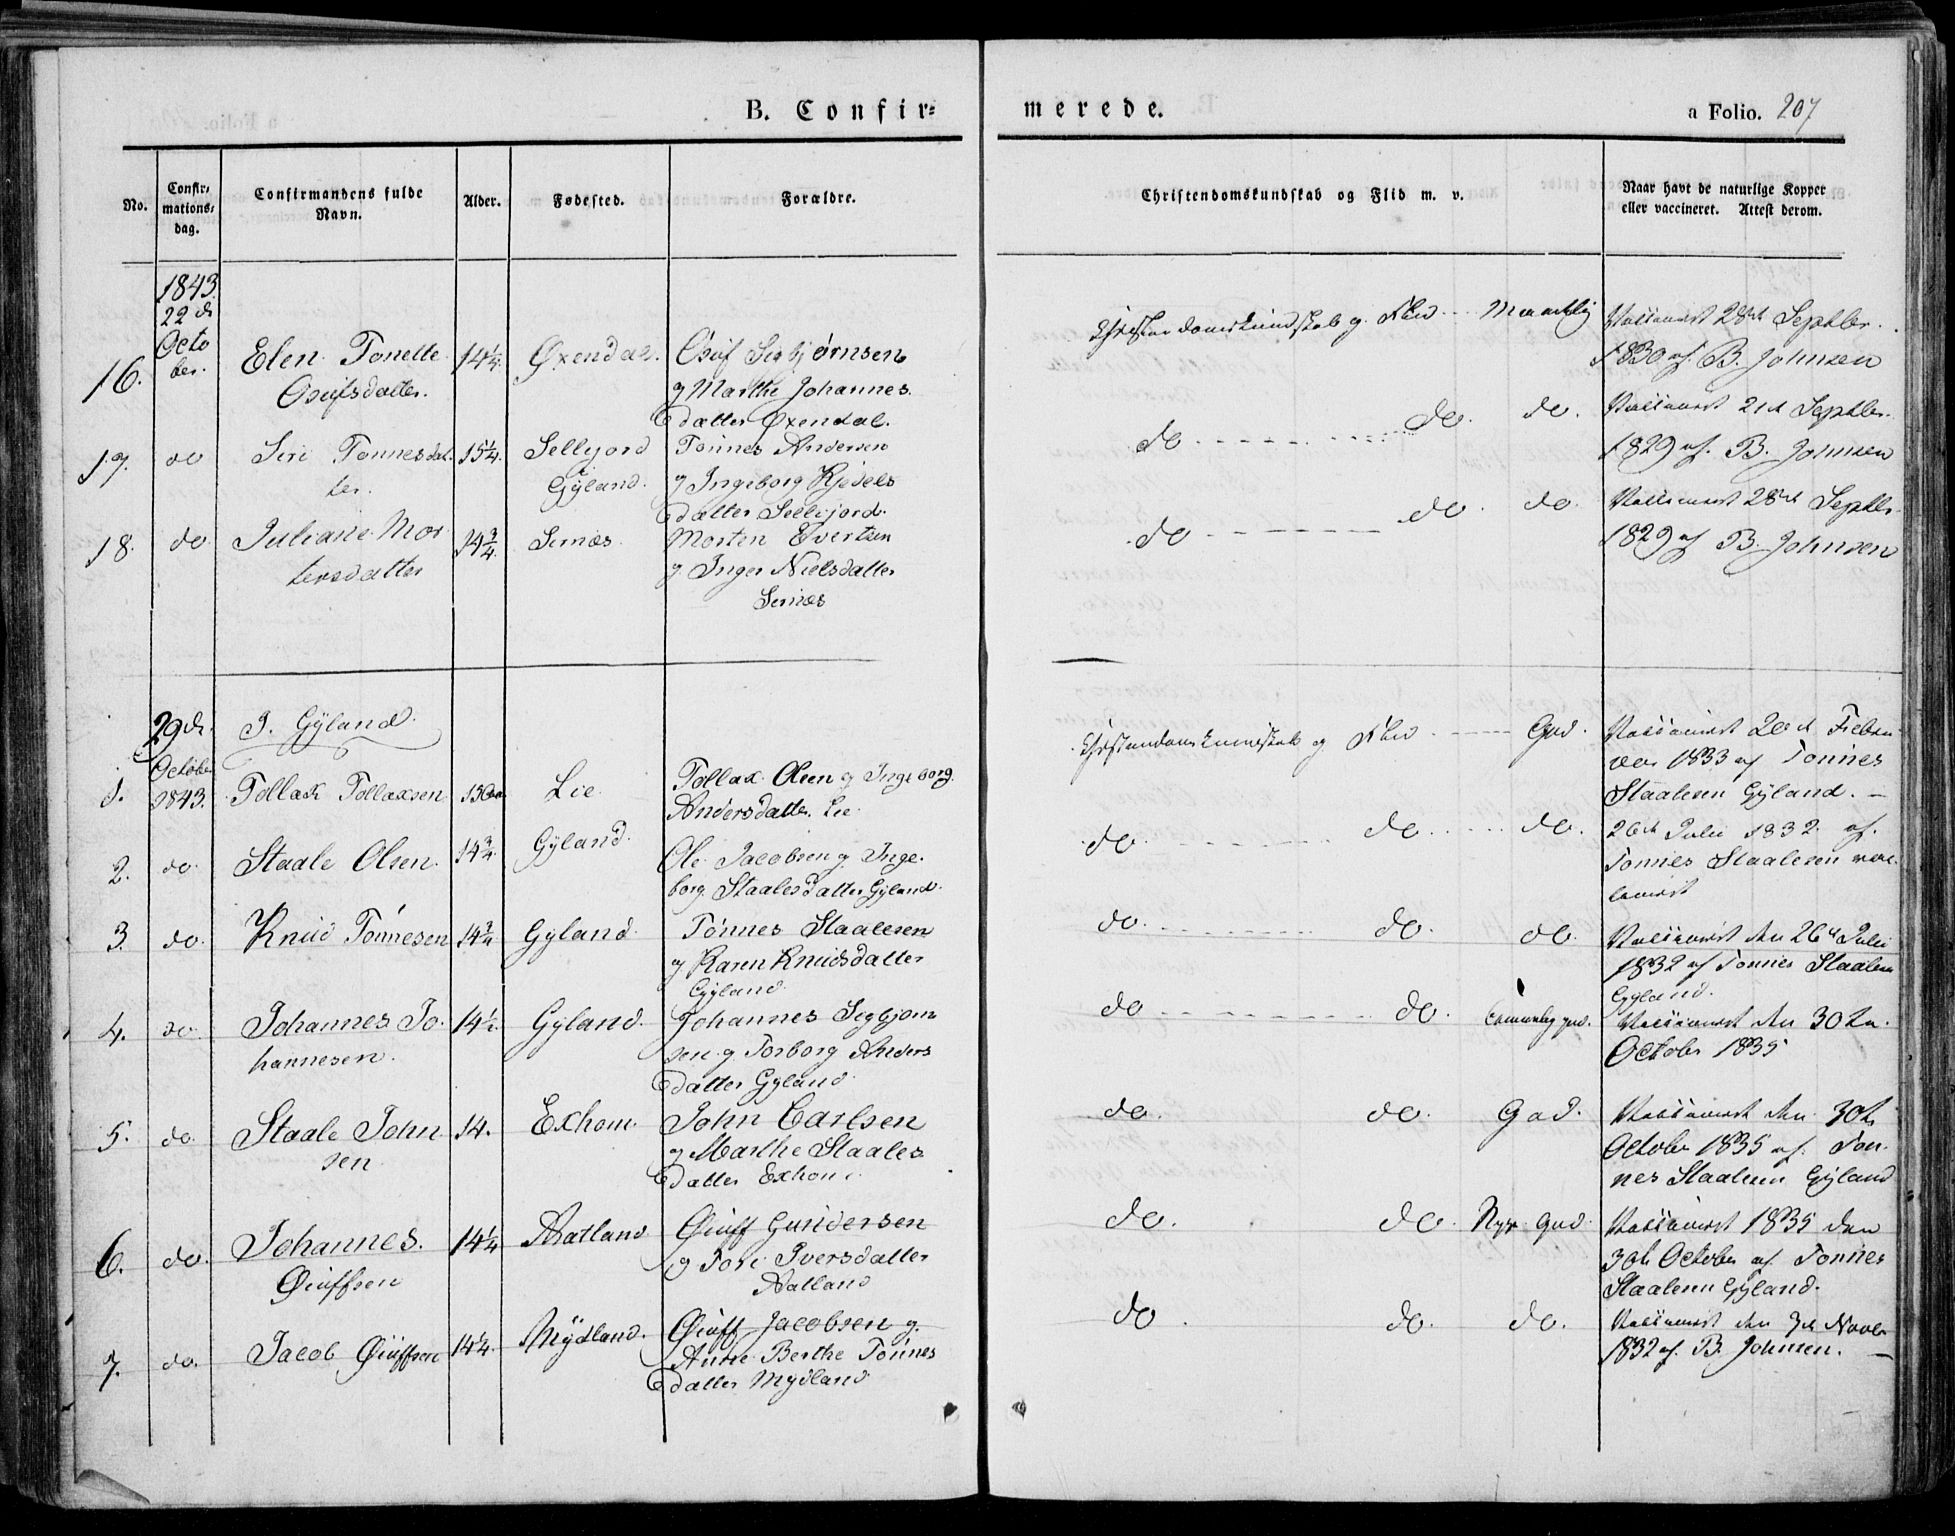 B. Confir= merede.
a Folio. 207
No.
Confir-
mations-
dag.
Confirmandens fulde
Navn.
Alder.
Fødested.
Forældre.
Christendomskundskab og Flid m. v.
Naar havt de naturlige Kopper
eller vaccineret. Attest derom.
1843.
22de
Octo
ber.
16.
Elen Tonette
Osufsdatter.
14 1/4.
Øxendal.
Osuf Sigbjørnsen
og Marthe Johannes
datter Øxendal.
Christendomskundskab og Flid - - - Maadelig
Vaccineret 28de Septbr.
1830 af B. Johnsen
17.
do
Siri Tønnesdat
ter.
15 1/4.
Sellejord
Gyland.
Tønnes Andersen
og Ingeborg Kjedels
datter Sellejord.
do - - - - - - - - do. do.
Vaccineret 21de Septbr.
1829 af. B. Johnsen
18.
do
Juliane Mor
tensdatter
14 3/4
Sirnæs.
Morten Evertsen
og Inger Nielsdatter
Sirnæs
do - - - - - - - do. do.
Vaccineret 28de Septbr.
1829 af B. Johnsen
29de
October
1843.
I. Gyland.
1.
Tollak Tollaksen
15
Lie
Tollax Olsen og Ingeborg
Andersdatter Lie
Christendomskundskab og Flid - - - - God.
Vaccineret 20de Februa
1833 af Tønnes
Staalesen Gyland. -
2.
do.
Staale Olsen.
14 3/4.
Gyland.
Ole Jacobsen og Inge-
borg Staalesdatter Gyland.
do. - - - - - - - do. - - - - do.
26de Julii 1832. af.
Tønnes Staalesen vac
cineret
3.
do.
Knud Tønnesen
14 3/4
Gyland.
Tønnes Staalesen
og Karen Knudsdatter
Gyland
do. - - - - - - - do. do.
Vaccineret den 26de Julii
1832 af Tønnes Staalesen
Gyland.
4.
do.
Johannes Jo-
hannesen.
14 1/2.
Gyland.
Johannes Sigbjørn
sen og Torborg Anders
datter Gyland.
do - - - - - - - do. temmelig god.
Vaccineret den 30te
October 1835
5.
do.
Staale John
sen
14.
Exhom
John Carlsen
og Marthe Staales
datter Exhom.
do. do. God.
Vaccineret den 30te
October 1835 af. Tøn-
nes Staalesen Gyland
6.
do.
Johannes.
Øiuffsen
14 1/4
Aatland
Øiuff Gundersen
og Tori Iversdatter
Aatland
do. do. God.
Vaccineret 1835 den
30te October af. Tønnes
Staalesen Gyland.
7.
do.
Jacob Øiuffsen
14 1/4.
Mydland.
Øiuff Jacobsen og
Anne Berthe Tønnes
datter Mydland
do. do. do.
Vaccineret den 7de Novbr
1832 af. B. Johnsen. -